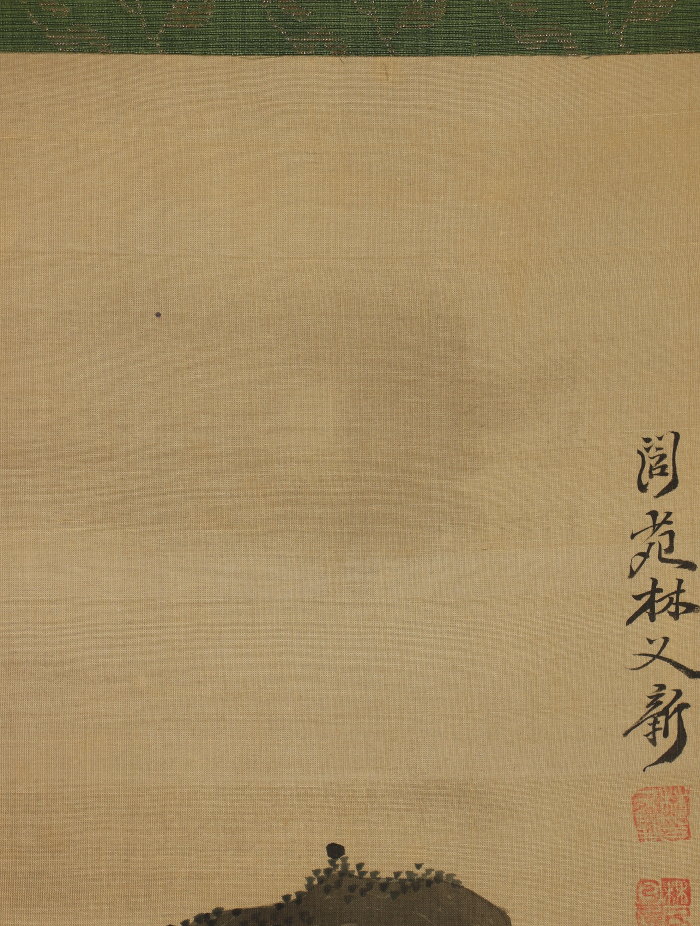 閬苑林又新